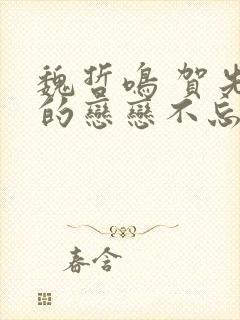 魏哲鳴 賀先
的戀戀不忘
春含